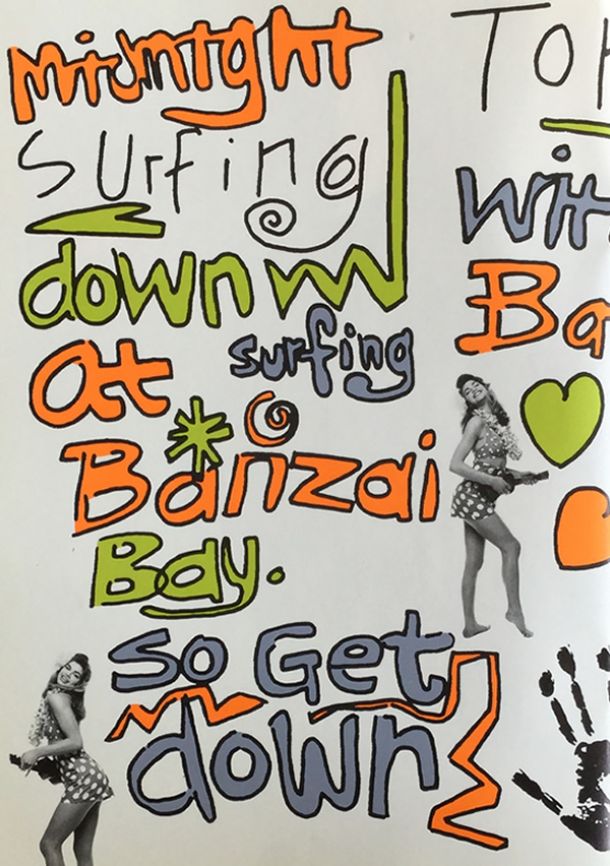 Midnight
Surfing
down
at surfing
Banzai
Bay.
so Get
down
To
wit
Ba